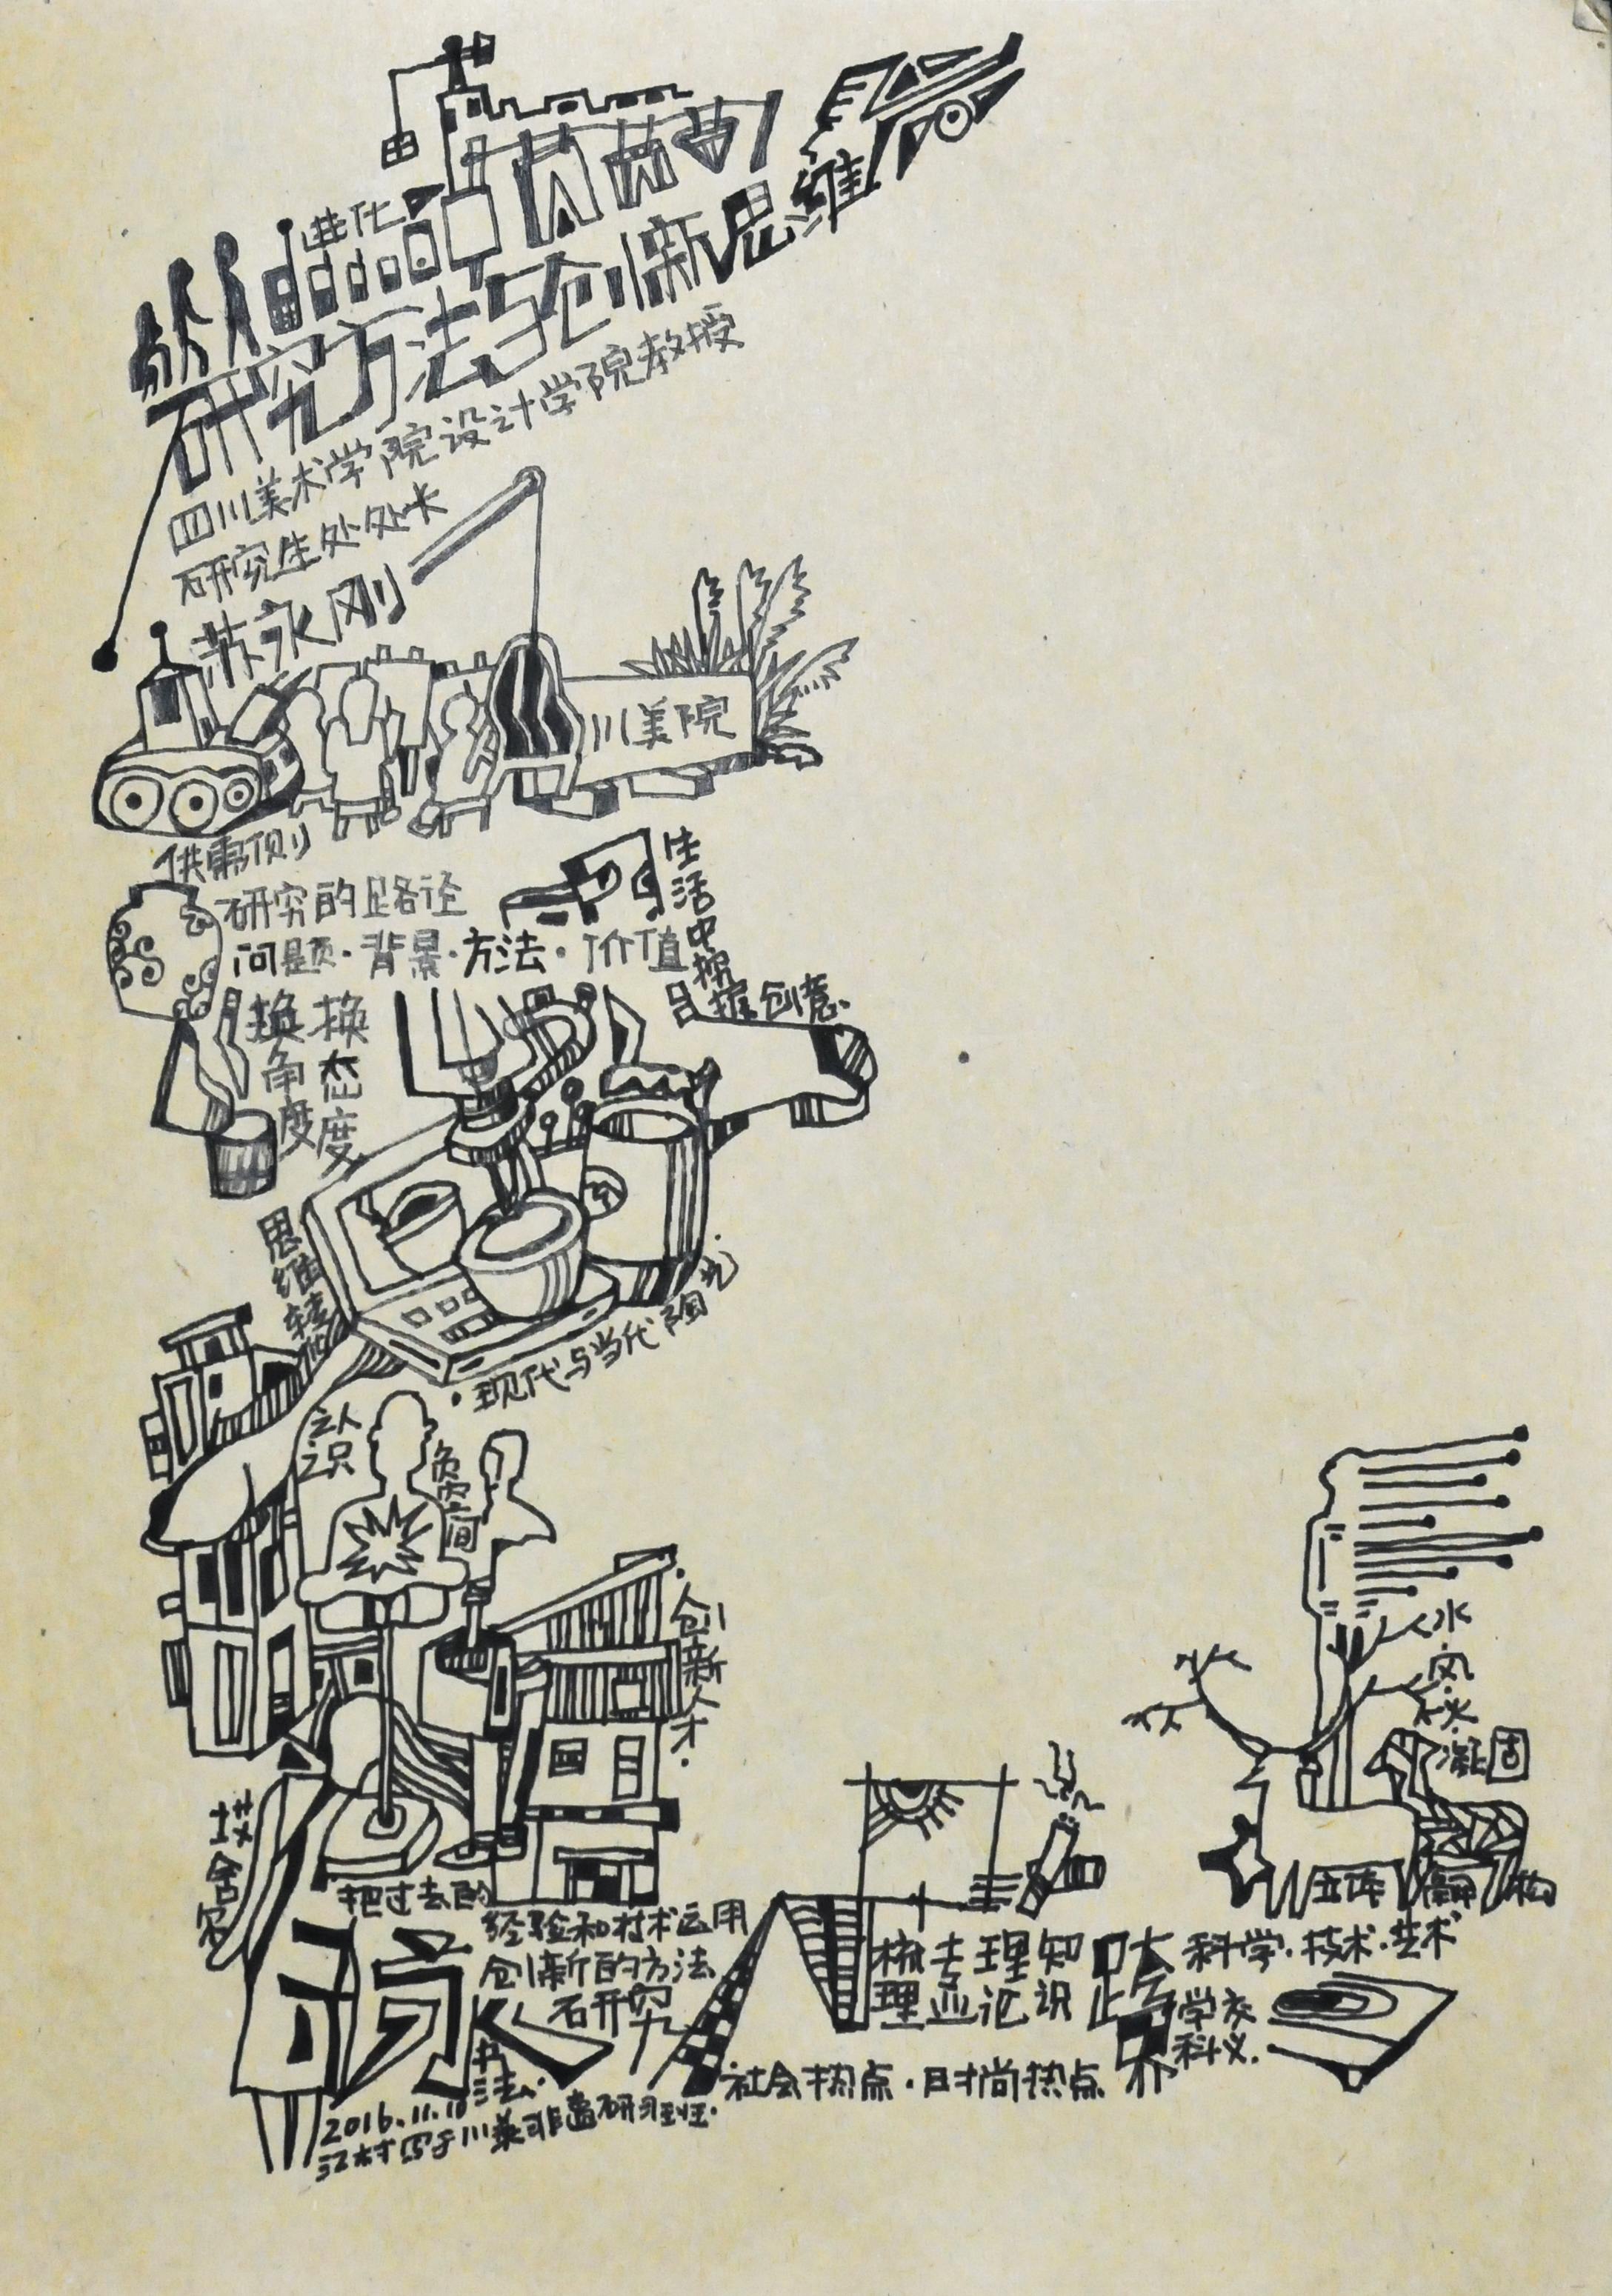 进化
研究方法与创新思维
四川美术学院设计学院教授
研究生处处长
苏永刚
川美院
供需侧
研究的路径
问题·背景·方法·价值
生活中挖掘创意
换角度
换态度
思维转化
·现代与当代陶艺·
认识
负空间
·创新人才·
把过去的
经验和技术运用
创新的方法
研究
书法·
2016.11.10
江村写于川美非遗研习班·
梳理
理论
知识
跨界
科学·技术·艺术
学科
·社会热点·时尚热点
水·风·火·凝固
立体